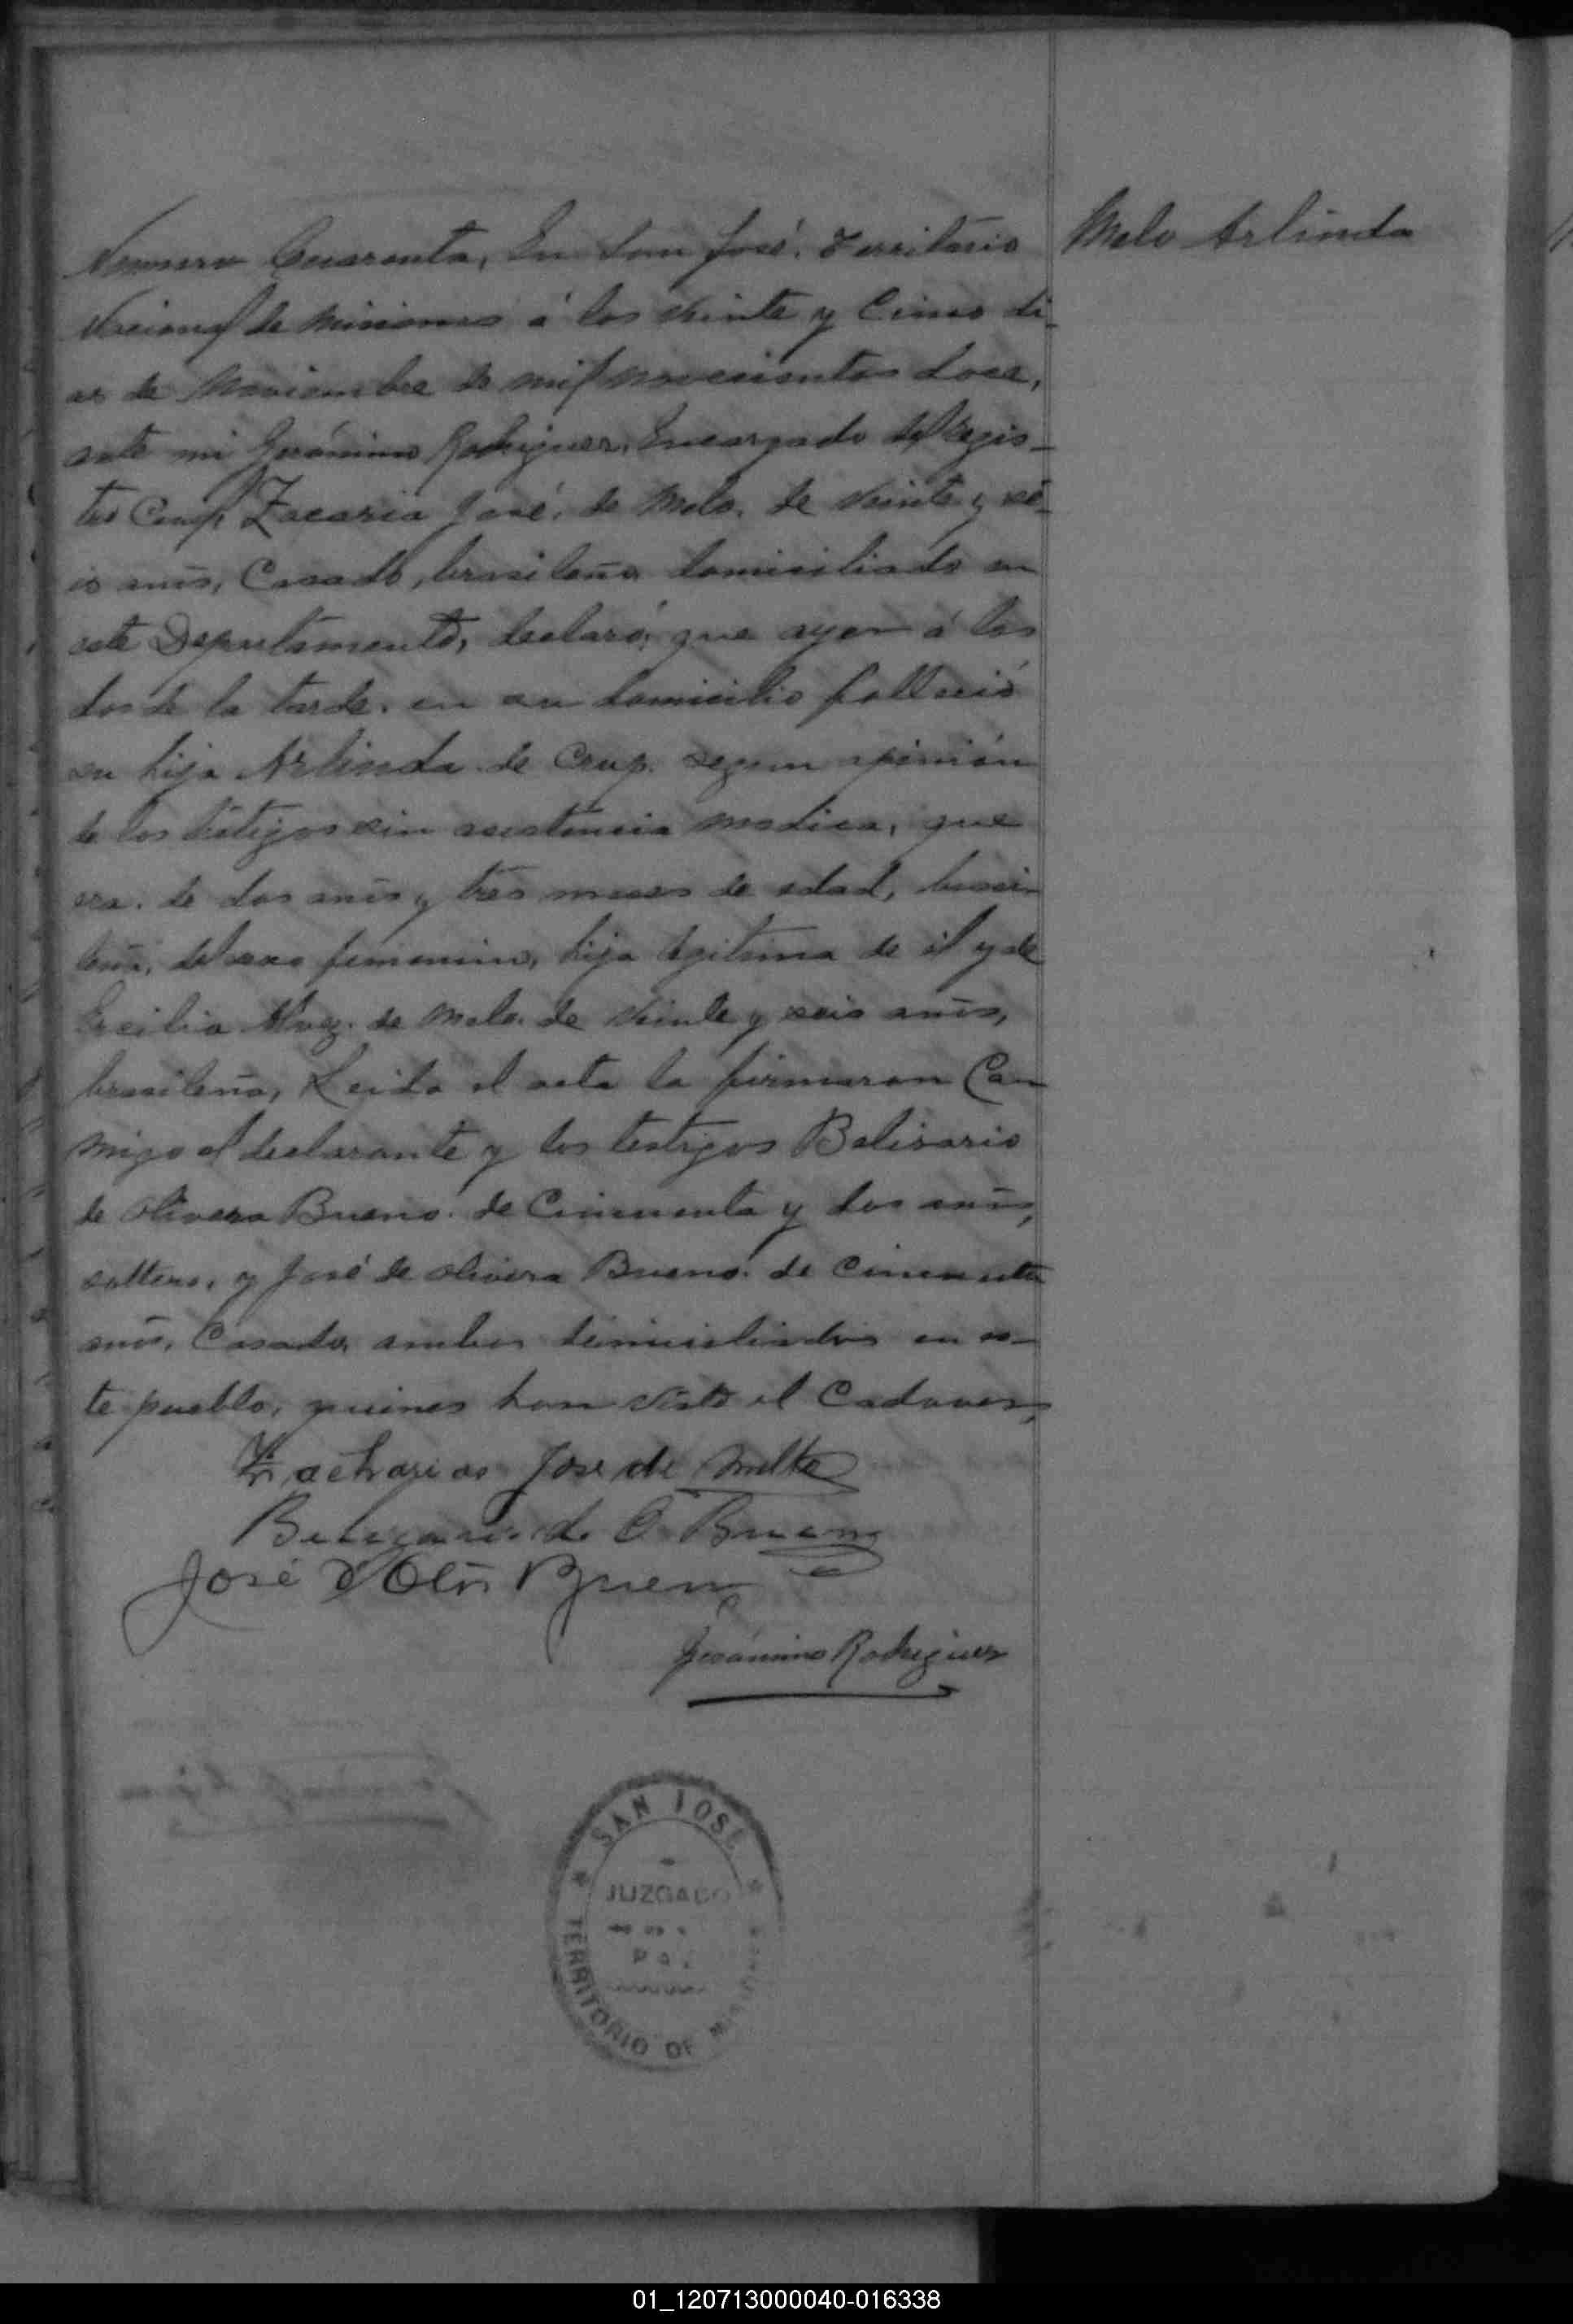 Numero Cuarenta, En San José, Territorio
Nacional de Misiones á los veinte y cinco di-
as de Noviembre de mil novecientos doce,
ante mi Gerónimo Rodriguez, Encargado del Regis-
tro Comp. Zacaria José de Melo de veinte y se-
is años, Casado, brasileño domiciliado en
este Departamento, declaró: que ayer á las
dos de la tarde en su domicilio falleció
su hija Arlinda de Crup. segun opinión
de los testigos sin asistencia medica, que
era de dos años y tres meses de edad, brasi-
leña, del sexo femenino, hija legitima de él y de
Ercilia de Melo de veinte y seis años,
brasileña, Leida el acta la firmaron Con-
migo el declarante y los testigos Belisario
de Olivera Bueno de Cincuenta y dos años,
soltero, y José de Olivera Bueno de Cincuenta
años, Casado, ambos domiciliados en es-
te pueblo, quienes han visto el Cadaver,
Zacharias Jose de Mello
de O Bueno
José d' Bueno
Gerónimo Rodriguez
Melo Arlinda
SAN JOSE
JUZGADO
DE
PAZ
TERRITORIO DE
01_120713000040-016338